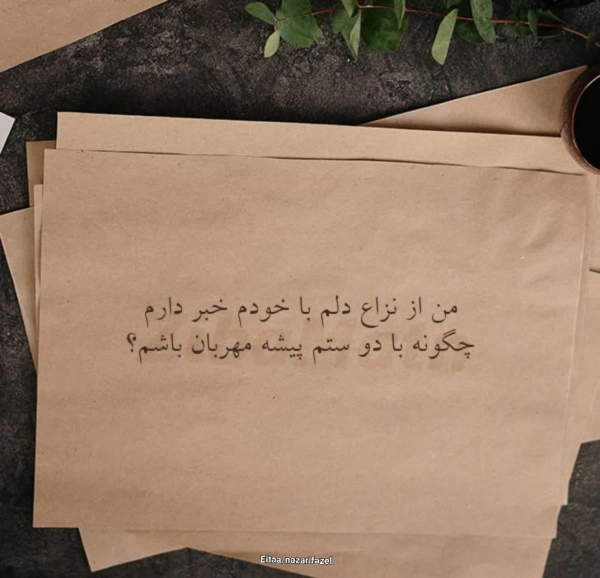 من از نزاع دلم با خودم خبر دارم
چگونه با دو ستم پیشه مهربان باشم؟
Eitaa/nazarifazel